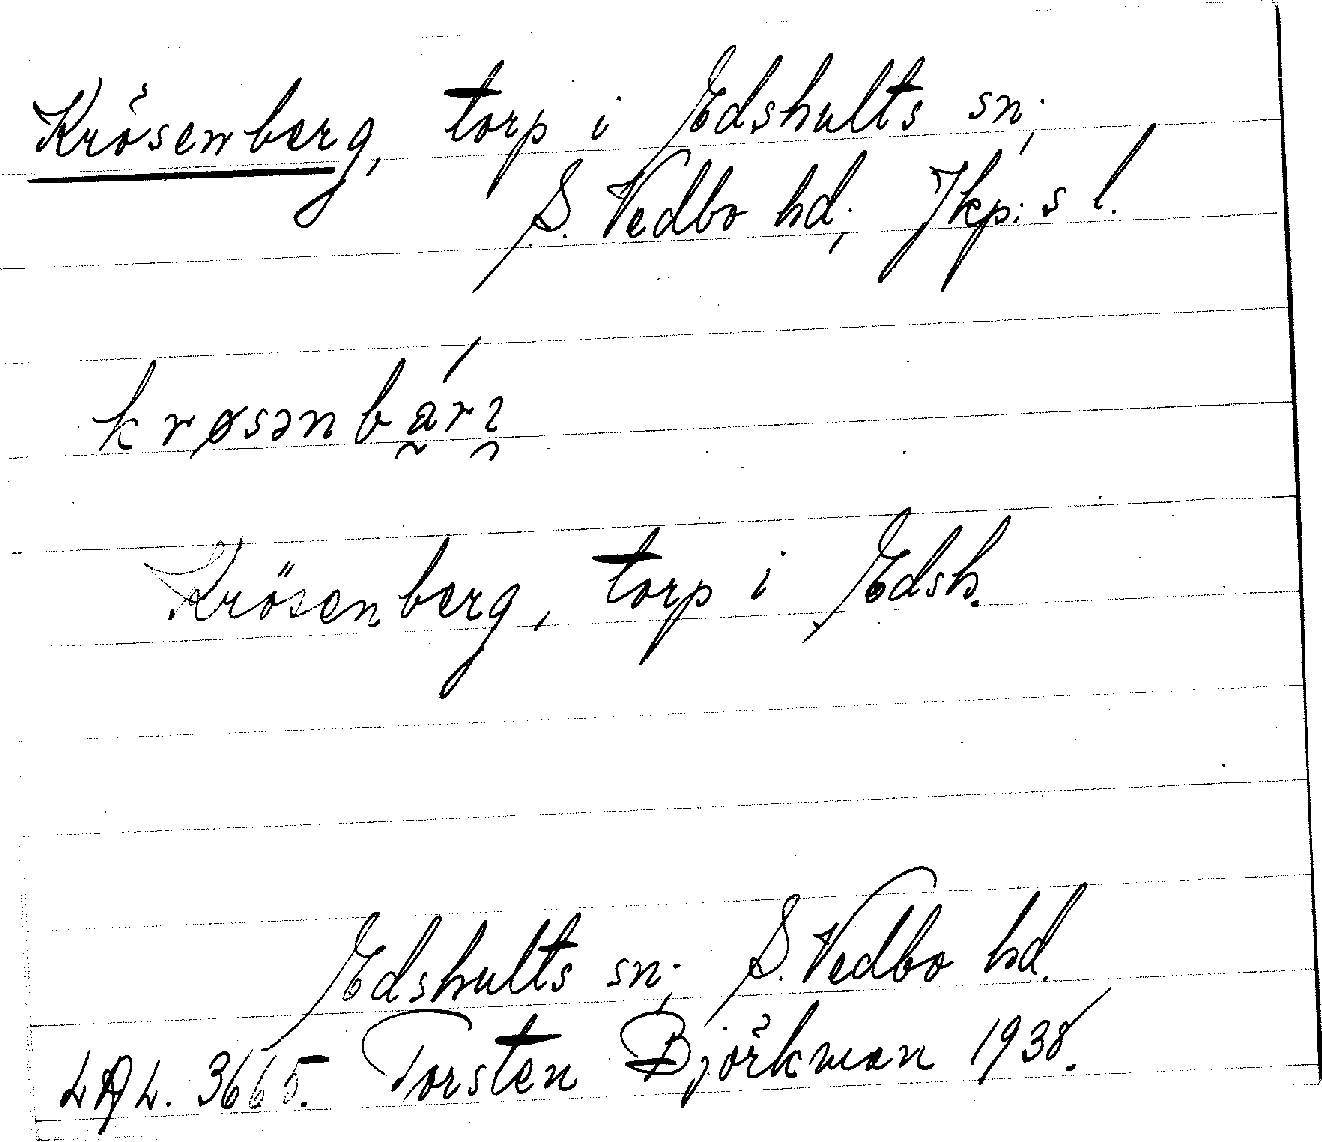 Krösenberg, torp i Edshults sn;
S. Vedbo hd; Jkp:s l.
krøsənbárɿ
Krösenberg, torp i Edsh.
Edshults sn; S. Vedbo hd.
LAL. 3665. Torsten Björkman 1938.